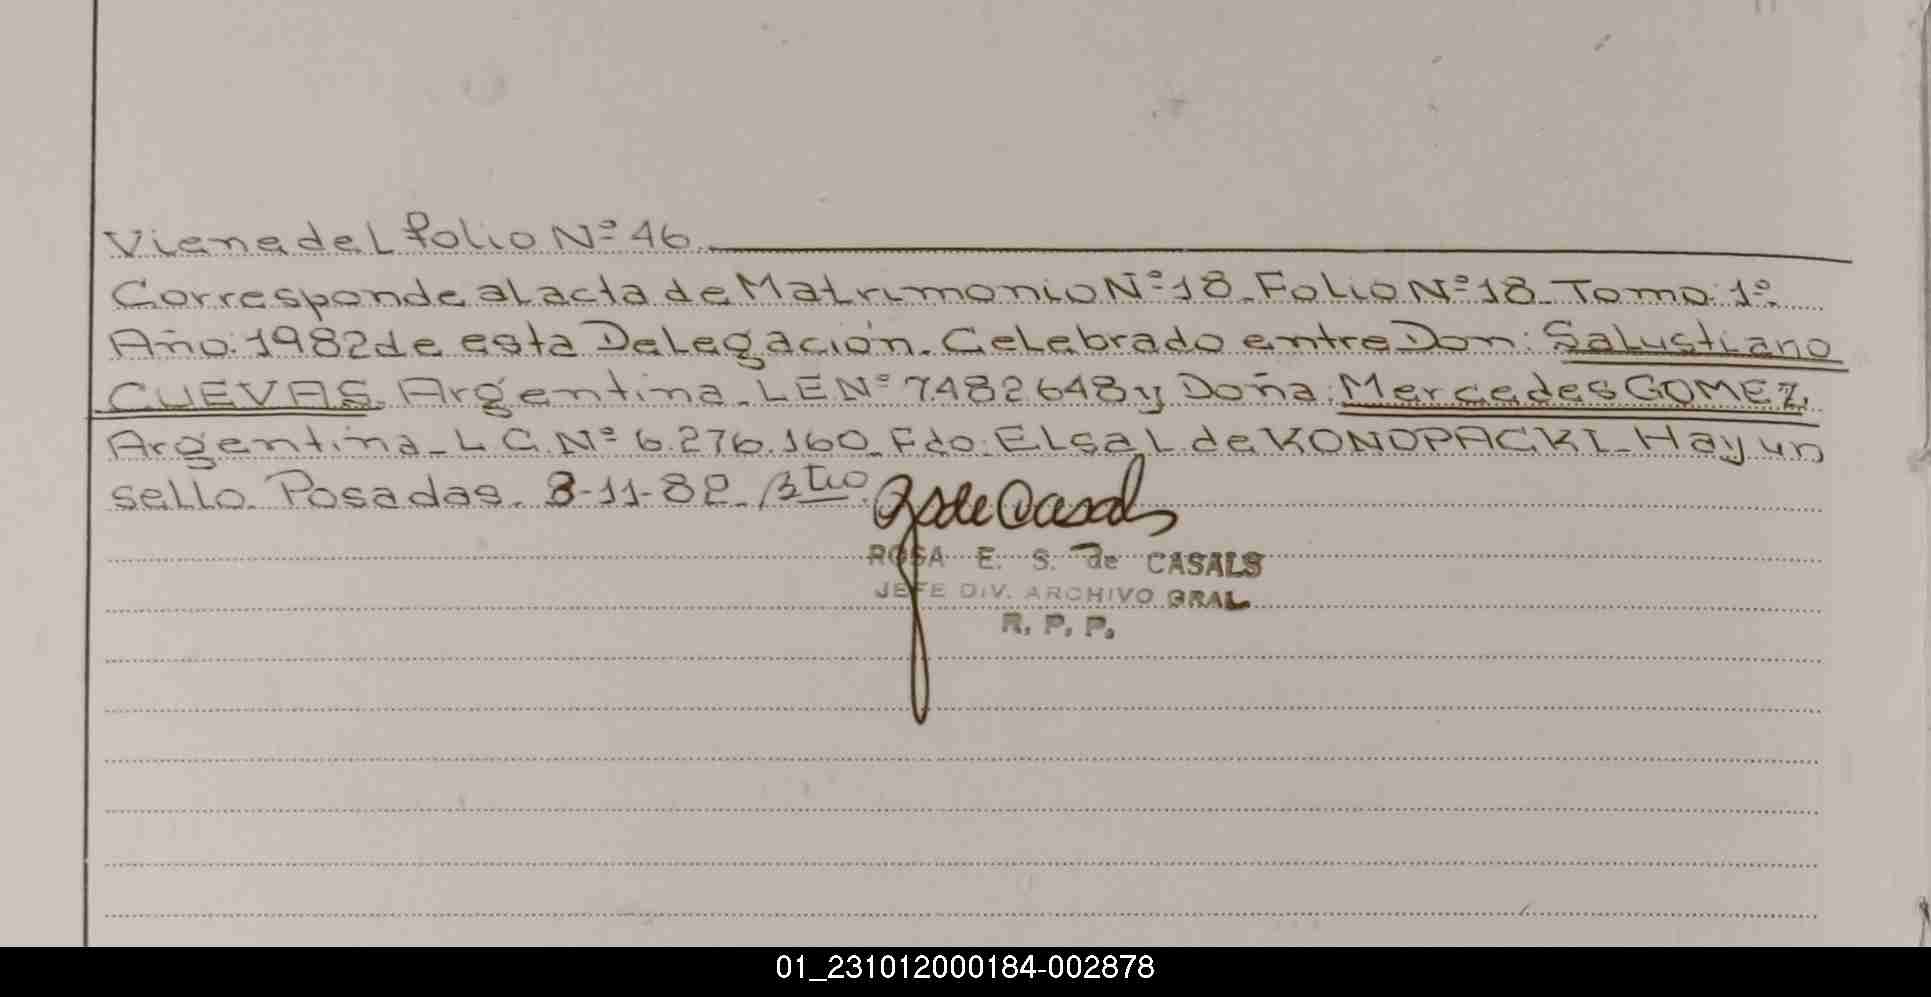 Viene del folio Nº 46.
Corresponde al acta de Matrimonio Nº 18. Folio Nº 18. Tomo: 1º.
Año: 1982 de esta Delegación. Celebrado entre Don: Salustiano
CUEVAS. Argentina. LE Nº 7.482648 y Doña: Mercedes GOMEZ.
Argentina - L C. Nº 6.276.160. Fdo: Elsa L. de KONOPACKI. Hay un
sello. Posadas. 3-11-82.
RdeCasals
ROSA E. S. de CASALS
JEFE DIV. ARCHIVO GRAL
R. P. P.
01_231012000184-002878